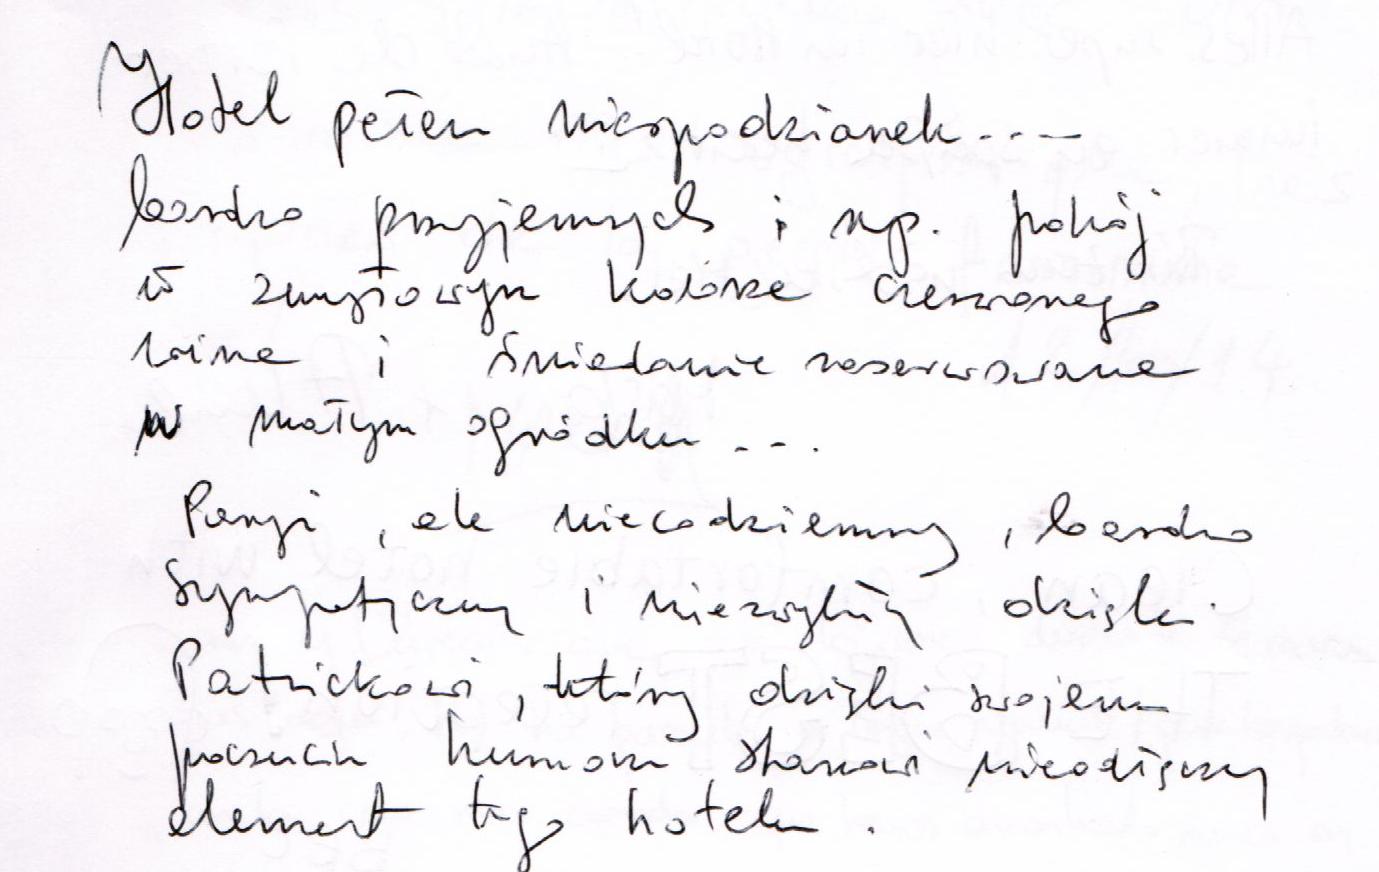 Hotel pełen niespodzianek....
bardzo przyjemnych i np. pokój
w zmysłowym kolorze czerwonego
wina i śniadanie rezerwowane
w małym ogródku ...
, ale niecodzienny, bardzo
sympatyczny i niezwykły dzięki
Patrickowi, który dzięki swojemu
poczuciu humoru stanowi nieodłączny
element tego hotelu.